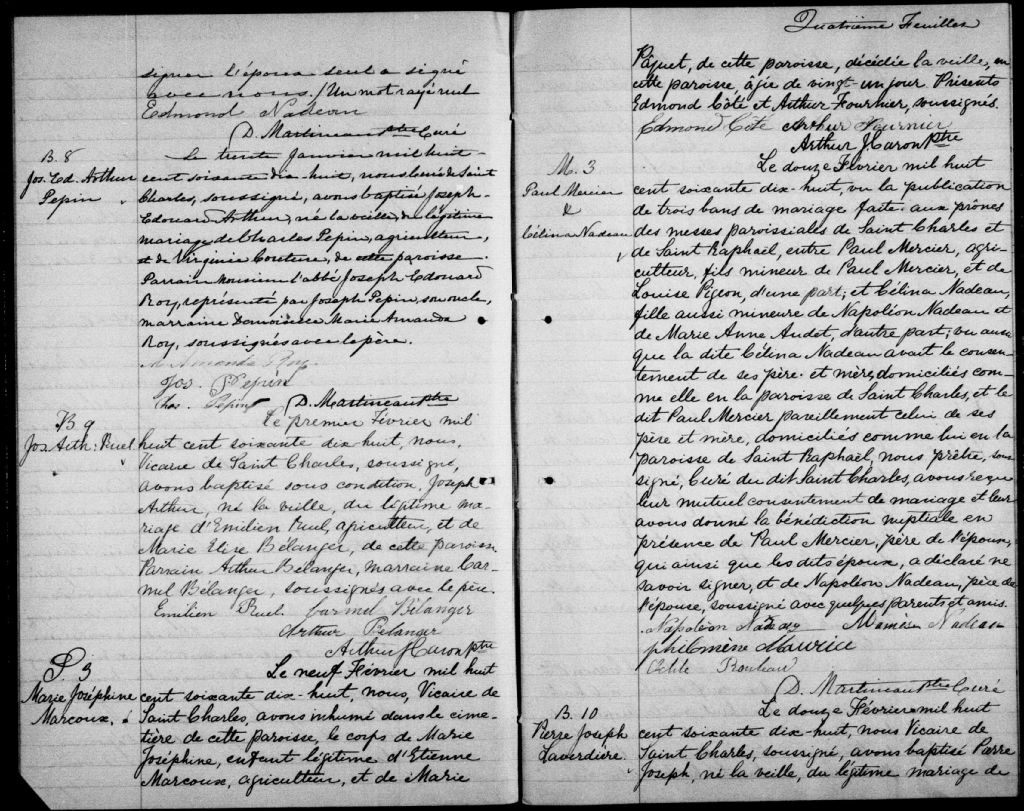 signer l'époux seul a signé
avec nous. / Un mot rayé nul
Edmond Nadeau
D. Martineau Ptre Curé
B. 8
Jos. Ed. Arthur
Pepin
Le trente Janvier mil huit
cent soixante dix-huit, nous Curé de Saint
Charles, soussigné, avons baptisé Joseph
Edouard Arthur, né la veille, du légitime
mariage de Charles Pepin, agriculteur,
et de Virginie Couture, de cette paroisse.
Parrain Monsieur l'abbé Joseph Edouard
Roy, représenté par Joseph Pepin, son oncle,
marraine Demoiselle Marie Amanda
Roy, soussignés avec le père.
M. Amanda Roy
Jos. Pepin
Chas. Pepin D. Martineau Ptre
B 9
Jos. Arth: Ruel
Le premier Février mil
huit cent soixante dix-huit, nous,
Vicaire de Saint Charles, soussigné,
avons baptisé sous condition, Joseph
Arthur, né la veille, du légitime ma-
riage d'Emilien Ruel, agriculteur, et de
Marie Elise Bélanger, de cette paroisse
Parrain Arthur Bélanger, marraine Car-
mel Bélanger, soussignés avec le père.
Emilien Ruel Carmel Bélanger
Arthur Bélanger
Arthur J Caron Ptre
S. 3
Marie Joséphine
Marcoux,
Le neuf Février mil huit
cent soixante dix-huit, nous, Vicaire de
Saint Charles, avons inhumé dans le cime-
tière de cette paroisse, le corps de Marie
Joséphine, enfant légitime d'Etienne
Marcoux, agriculteur, et de Marie
Quatrième Feuillet
Pâquet, de cette paroisse, décédée la veille, en
cette paroisse, âgée de vingt-un jour. Présents
Edmond Côté et Arthur Fournier, soussignés.
Edmond Côté Arthur Fournier
Arthur J Caron Ptre
M. 3
Paul Mercier
&
Célina Nadeau
Le douze Février mil huit
cent soixante dix-huit, vu la publication
de trois bans de mariage faite aux prônes
des messes paroissiales de Saint Charles et
de Saint Raphaël, entre Paul Mercier, agri-
culteur, fils mineur de Paul Mercier, et de
Louise Pigeon, d'une part; et Célina Nadeau,
fille aussi mineure de Napoléon Nadeau et
de Marie Anne Audet, d'autre part; vu aussi
que la dite Célina Nadeau avait le consen-
tement de ses père et mère, domiciliés com-
me elle en la paroisse de Saint Charles, et le
dit Paul Mercier pareillement celui de ses
père et mère, domiciliés comme lui en la
paroisse de Saint Raphaël, nous prêtre, sous-
signé, Curé du dit Saint Charles, avons reçu
leur mutuel consentement de mariage et leur
avons donné la bénédiction nuptiale en
présence de Paul Mercier, père de l'époux,
qui ainsi que les dits époux, a déclaré ne
savoir signer, et de Napoléon Nadeau, père de
l'épouse, soussigné avec quelques parents et amis.
Napoléon Nadeau Nadeau
philomène
Rouleau
D. Martineau Ptre Curé
B. 10
Pierre Joseph
Laverdière
Le douze Février mil huit
cent soixante dix-huit, nous Vicaire de
Saint Charles, soussigné, avons baptisé Pierre
Joseph, né la veille, du légitime mariage de